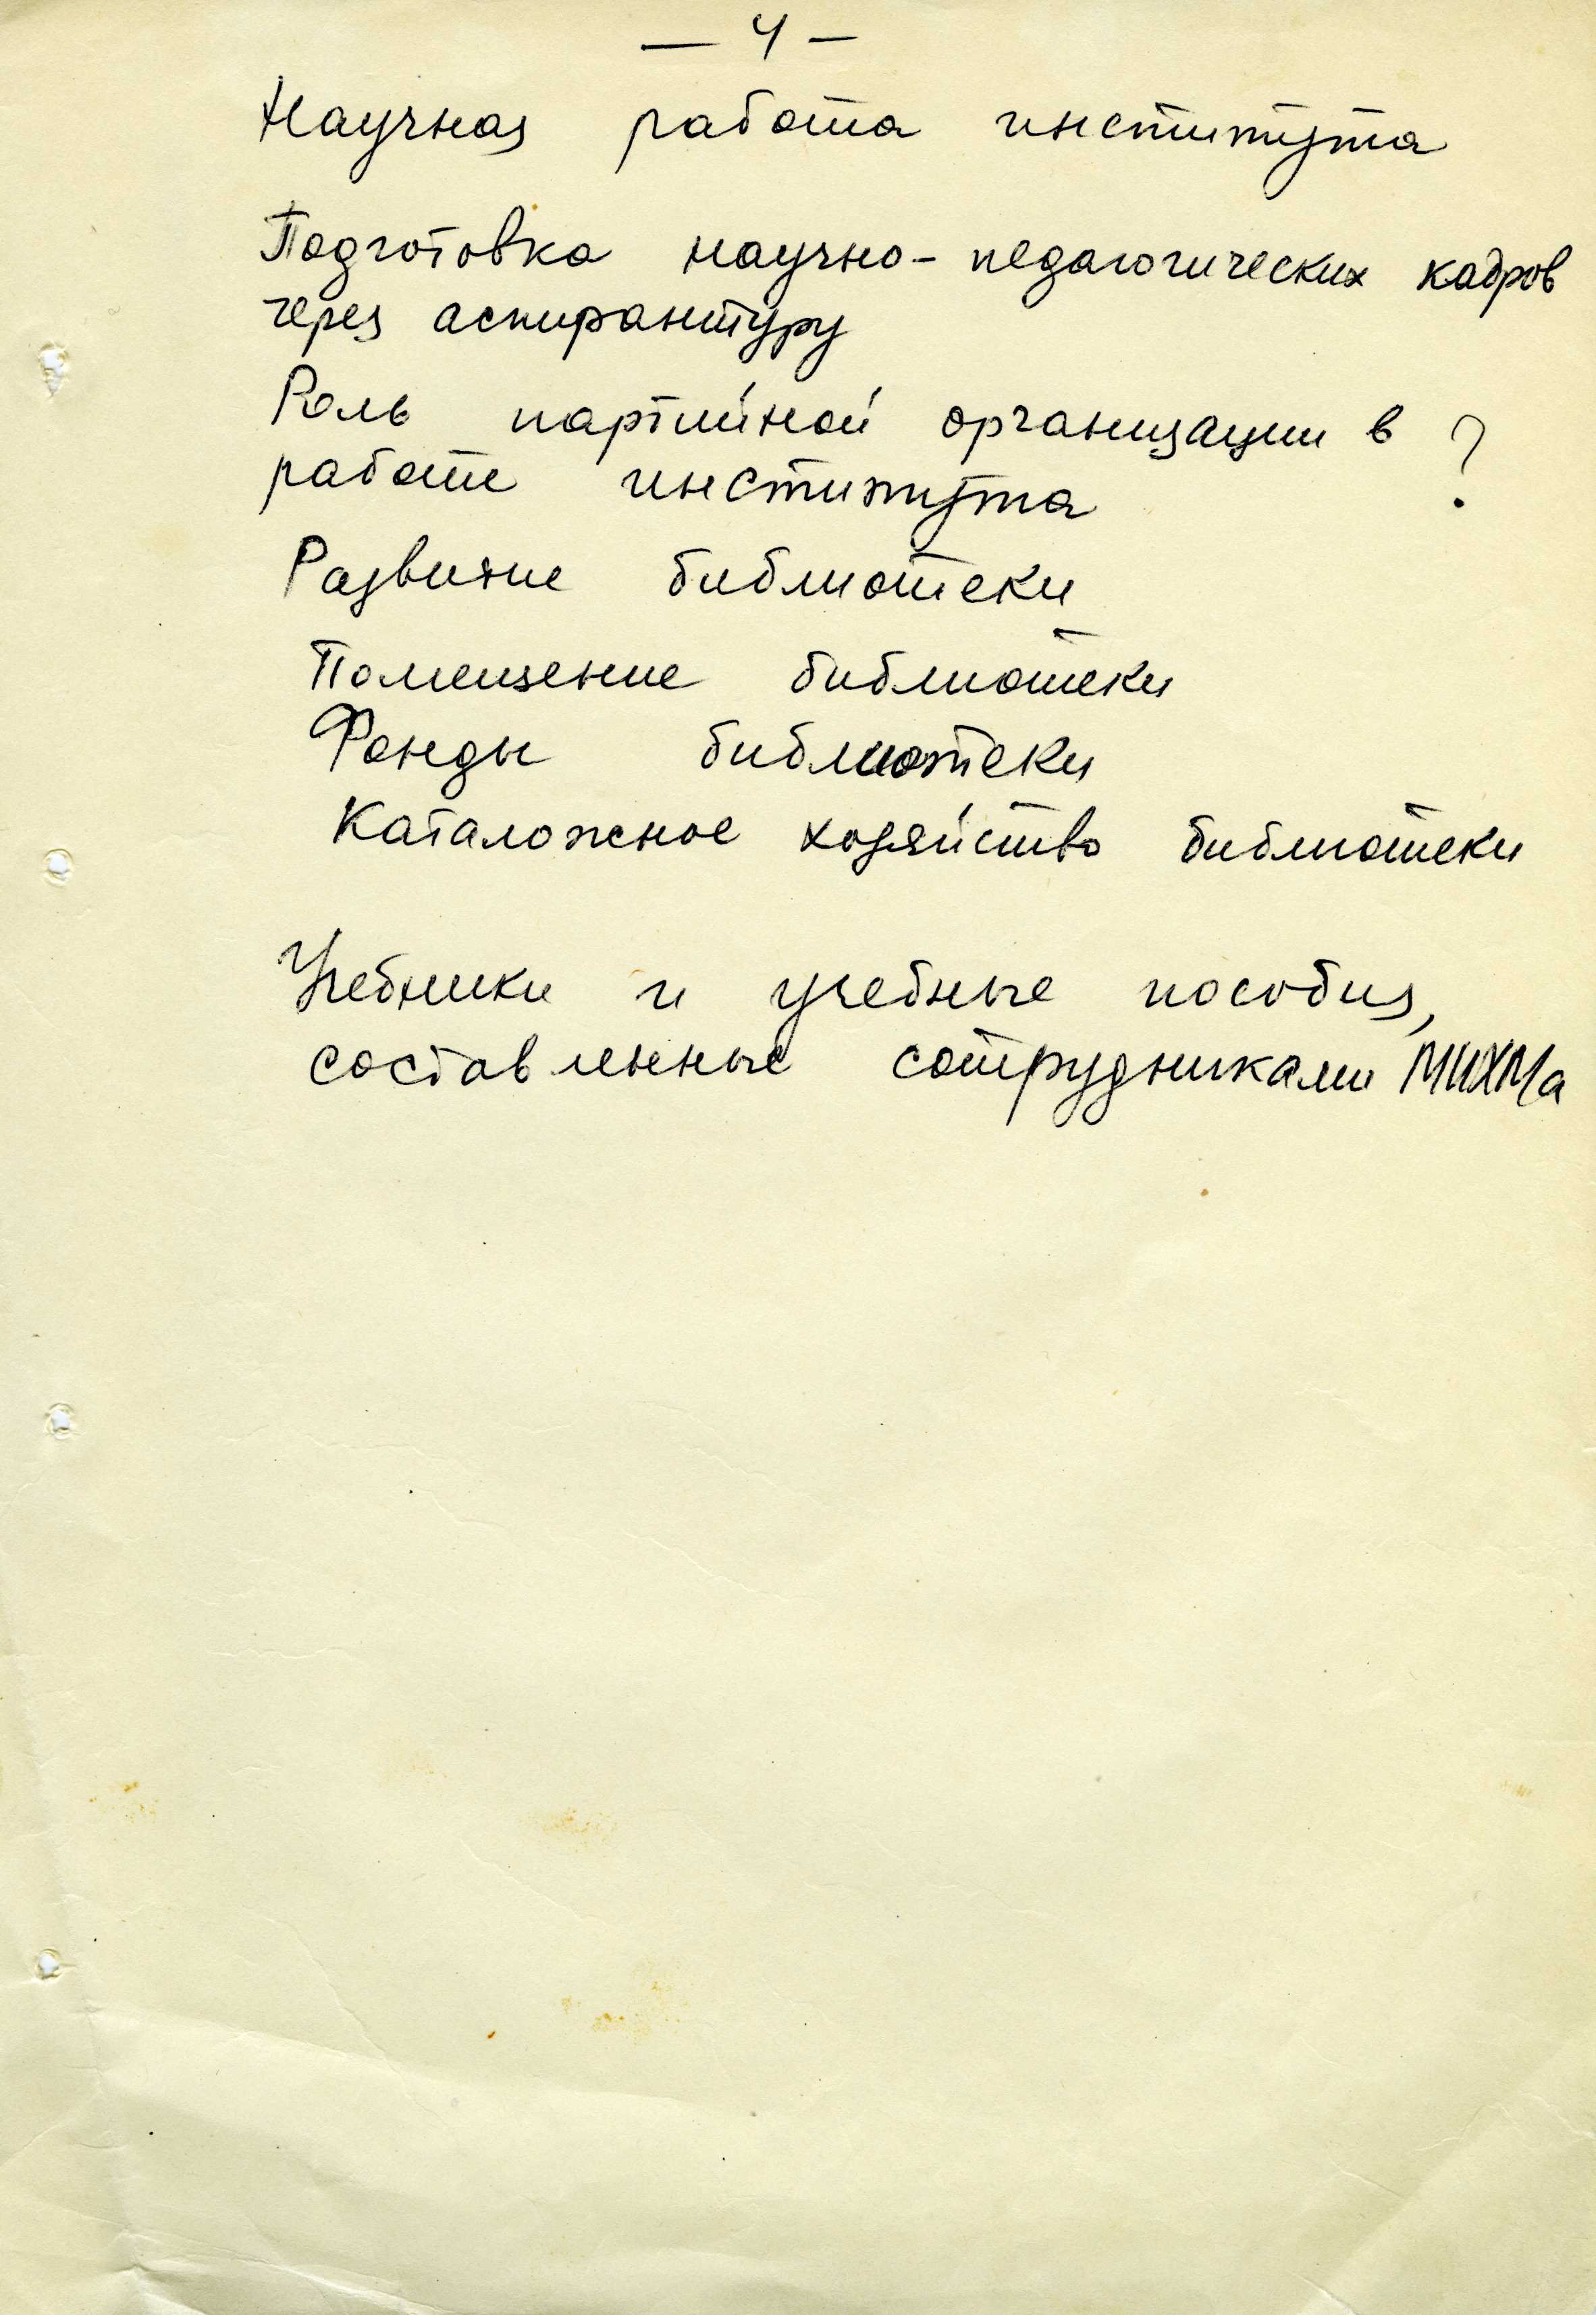 — 4 —
Научная работа института
Подготовка научно-педагогических кадров
через аспирантуру
Роль партийной организации в ?
работе института
Развитие библиотеки
Помещение библиотеки
Фонды библиотеки
Каталожное хозяйство библиотеки
Учебники и учебные пособия,
составленные сотрудниками МИХМа